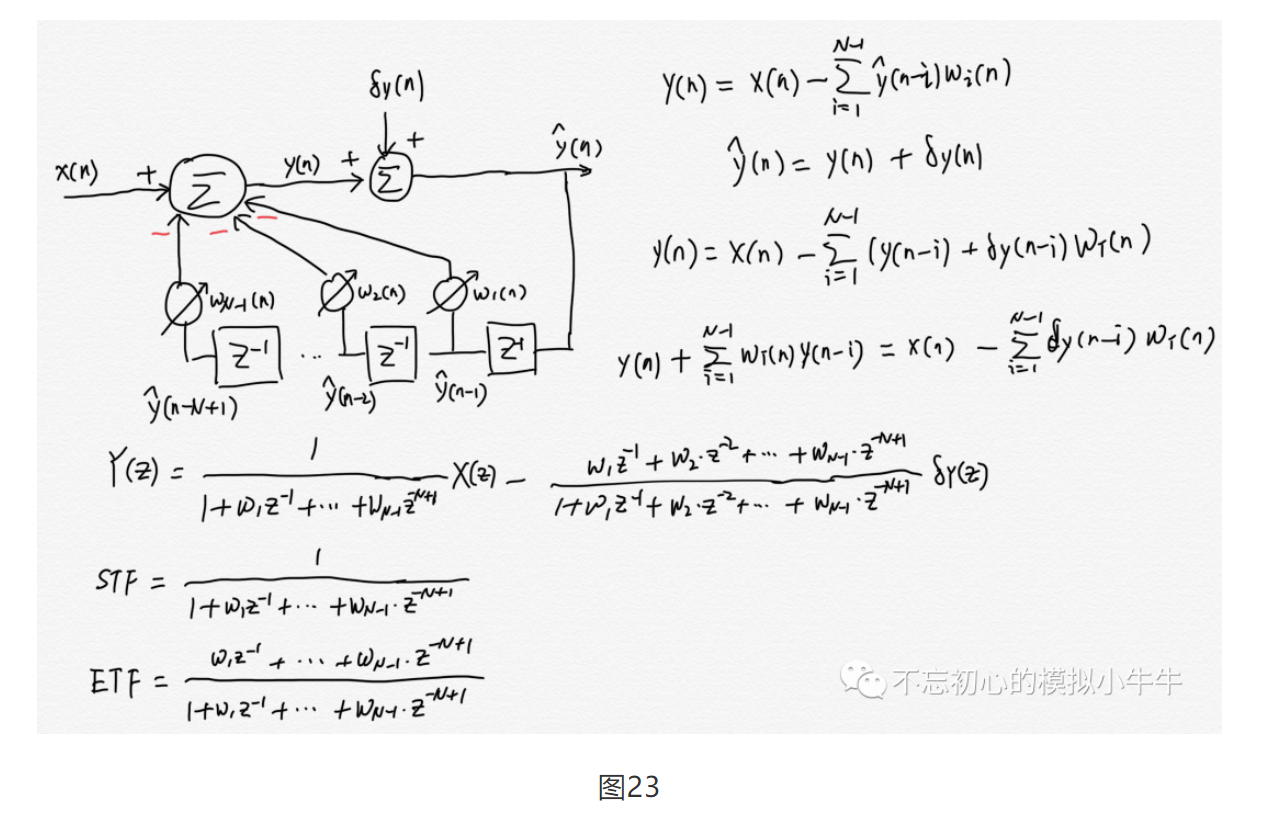 δy(n)
x(n) + Σ y(n) + Σ + ŷ(n)
− − −
w_{N-1}(n) w₂(n) w₁(n)
z⁻¹ ... z⁻¹ z⁻¹
ŷ(n-N+1) ŷ(n-2) ŷ(n-1)
y(n) = x(n) − Σ_{i=1}^{N-1} ŷ(n-i)wᵢ(n)
ŷ(n) = y(n) + δy(n)
y(n) = x(n) − Σ_{i=1}^{N-1} (y(n-i) + δy(n-i) wᵢ(n)
y(n) + Σ_{i=1}^{N-1} wᵢ(n) y(n-i) = x(n) − Σ_{i=1}^{N-1} δy(n-i) wᵢ(n)
Y(z) = 1 / (1+w₁z⁻¹+⋯+w_{N-1}z^{-N+1}) X(z) − (w₁z⁻¹+w₂·z⁻²+⋯+w_{N-1}·z^{-N+1}) / (1+w₁z⁻¹+w₂·z⁻²+⋯+w_{N-1}·z^{-N+1}) δY(z)
STF = 1 / (1+w₁z⁻¹+⋯+w_{N-1}·z^{-N+1})
ETF = (w₁z⁻¹+⋯+w_{N-1}·z^{-N+1}) / (1+w₁z⁻¹+⋯+w_{N-1}·z^{-N+1})
不忘初心的模拟小牛牛
图23